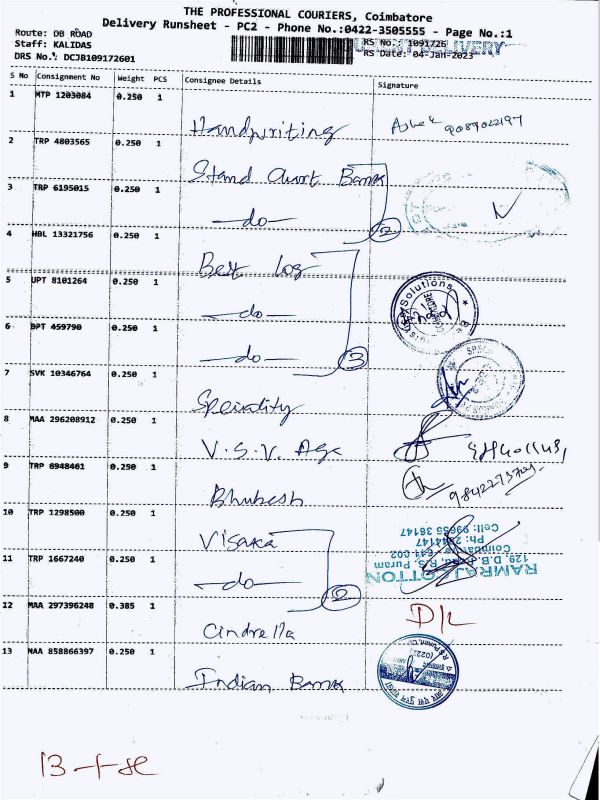 THE PROFESSIONAL COURIERS, Coimbatore
Delivery Runsheet - PC2 - Phone No.:0422-3505555 - Page No.:1
Route: DB ROAD
Staff: KALIDAS
DRS No.: DCJB109172601
RS No. 1091726
DELIVERY
RS Date: 04-Jan-2023
S No Consignment No Weight PCS Consignee Details Signature
1 MTP 1203084 0.250 1 Handwriting Ashok 9089022197
2 TRP 4803565 0.250 1 Stand Chart Bank
3 TRP 6195015 0.250 1 -do- 2
4 HBL 13321756 0.250 1 Best Log
5 UPT 8101264 0.250 1 -do- Solutions
6 BPT 459790 0.250 1 -do- 3
7 SVK 10346764 0.250 1 Speciality
8 MAA 296208912 0.250 1 V.S.V. Age
9 TRP 6948461 0.250 1 Bhubesh
10 TRP 1298500 0.250 1 Visaka
11 TRP 1667240 0.250 1 -do- 2
RAMRAJ COTTON
129, D.B. Road, R.S. Puram
Coimbatore 641 002
Ph: 2544147
Cell: 99655 36147
12 MAA 297396248 0.385 1 Cindrella D/L
13 NAA 858866397 0.250 1 Indian Bank
13